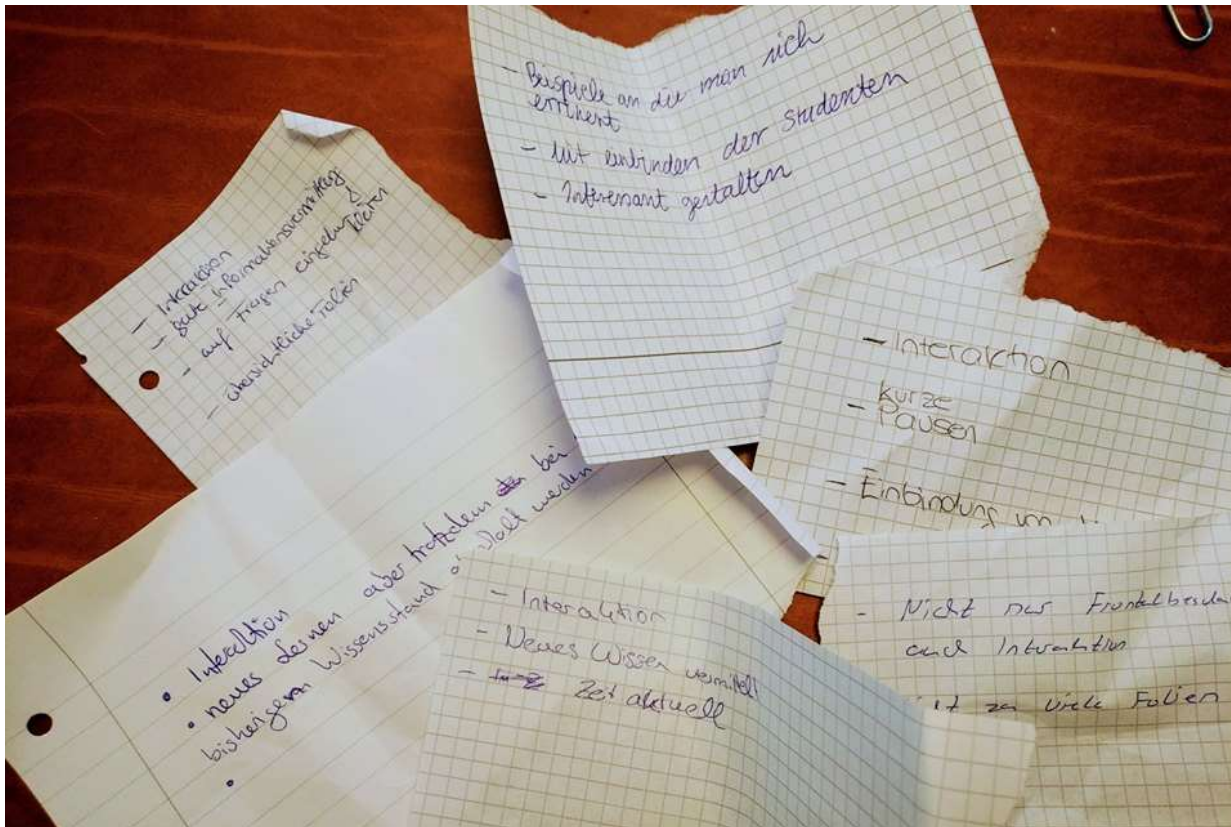 - Beispiele an die man sich
erinnert
- Mit einbinden der Studenten
- Interessant gestalten
- Interaktion
- gute Informationsvermittlung
- auf Fragen eingehen
- übersichtliche Folien
- Interaktion
kurze
- Pausen
- Einbindung von
• Interaktion
• neues lernen aber trotzdem bei
bisherigem Wissensstand werden
•
- Interaktion
- Neues Wissen vermittelt
- Zeit aktuell
- Nicht nur
auch Interaktion
zu viele Folien